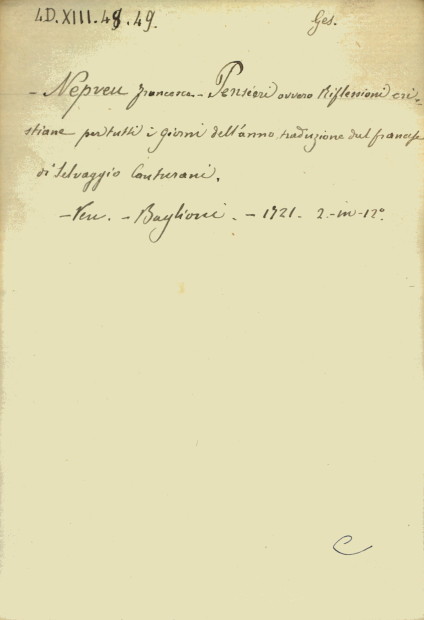 4D.XIII.48.49. Ges.
- Nepveu Francesco - Pensieri ovvero Riflessioni cri-
stiane per tutti i giorni dell'anno traduzione dal francese
di Selvaggio Canturani.
- Ven. - Baglioni. - 1721. 2.-in-12°.
C